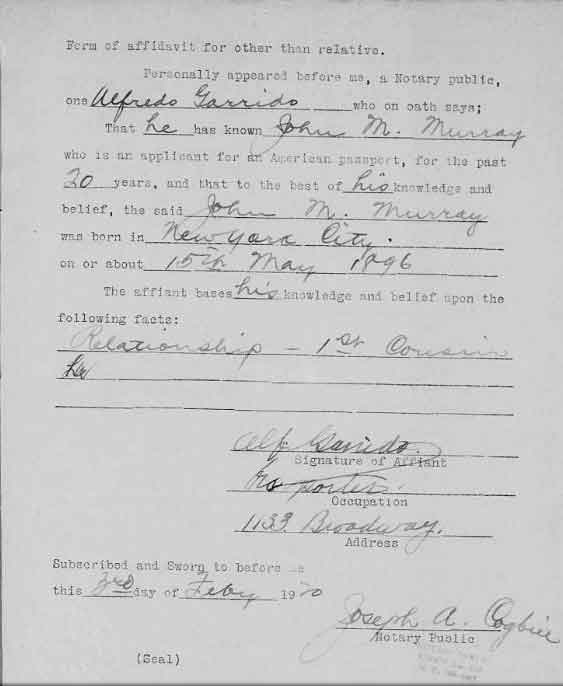 Form of affidavit for other than relative.
Personally appeared before me, a Notary public,
one Alfredo Garrido who on oath says;
That he has known John M. Murray
who is an applicant for an American passport, for the past
20 years, and that to the best of his knowledge and
belief, the said John M. Murray
was born in New York City.
on or about 15th May 1896
The affiant bases his knowledge and belief upon the
following facts:
Relationship - 1st Cousin
he
Alf Garrido.
Signature of Affiant
Occupation
1133 Broadway.
Address
Subscribed and Sworn to before me
this 3rd day of Feby 1920
Joseph A. Cogbill
Notary Public
(Seal)